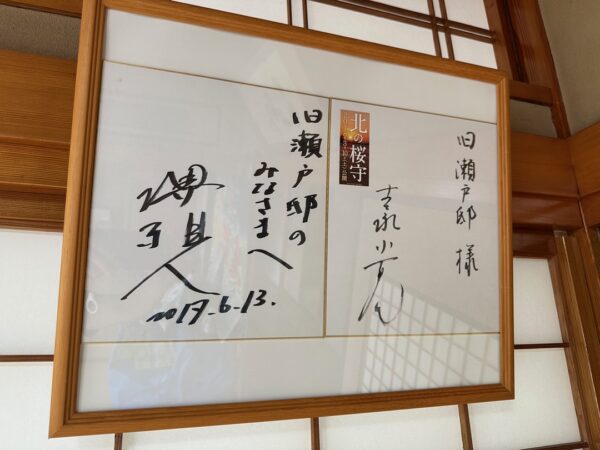 旧瀬戸邸 様
北の桜守
吉永小百合
旧瀬戸邸の
みなさまへ
堺雅人
2017.6.13.